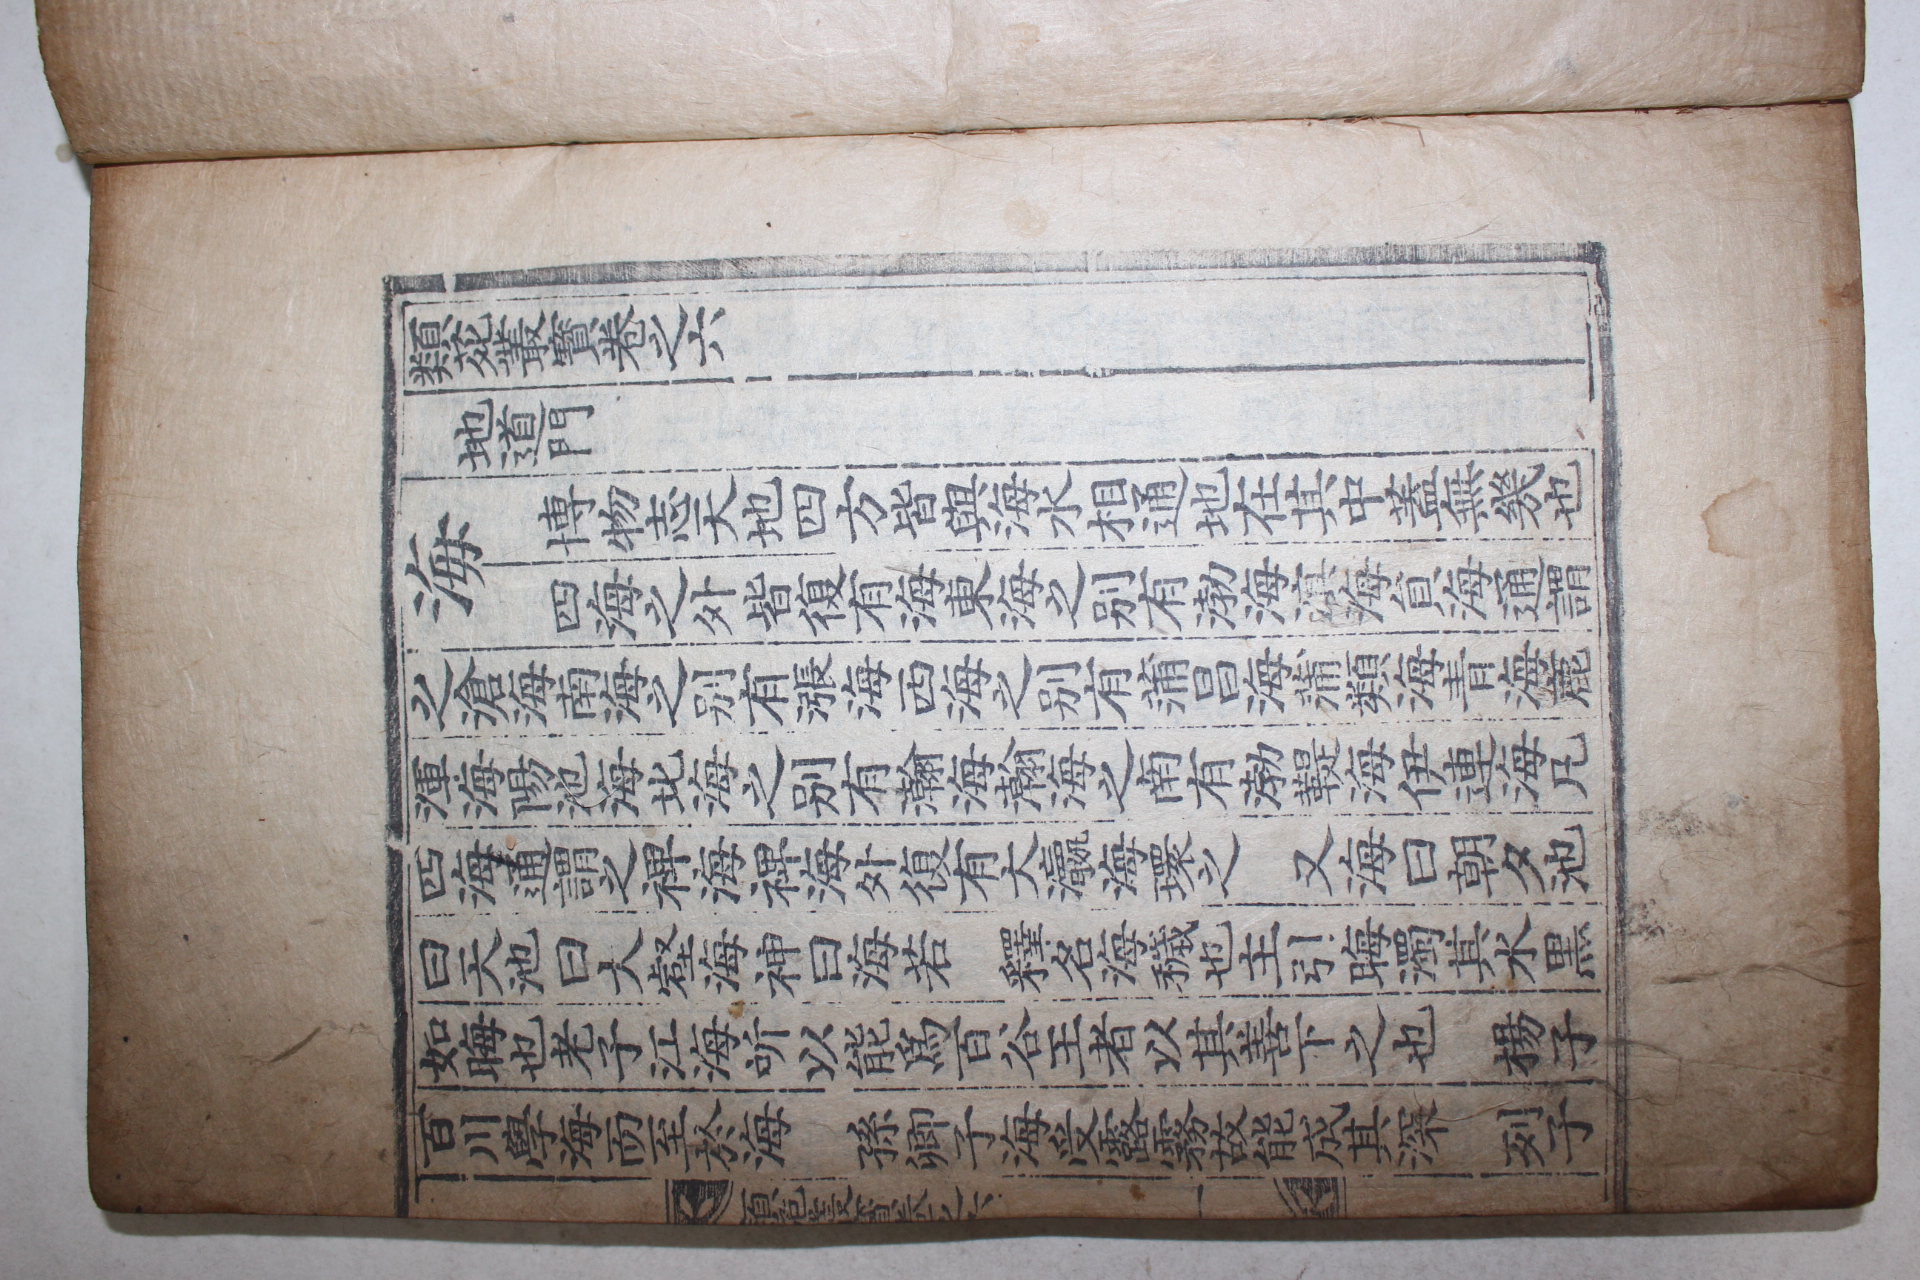 類苑叢寶卷之六
地道門
海
博物志天地四方皆與海水相通地在其中蓋無幾也
四海之外皆復有海東海之别有渤海滇海貟海通謂
之滄海南海之别有漲海西海之别有蒲昌海蒲類海青海鹿
渾海陽池海北海之别有瀚海瀚海之南有渤鞮海伊連海凡
四海通謂之裨海裨海外復有大瀛海環之　又海曰朝夕池
曰天池曰大壑海神曰海若　釋名海穢也主引晦濁其水黑
如晦也老子江海所以能爲百谷王者以其善下之也　楊子
百川學海而至於海　孫卿子海受露霧故能成其深　列子
類苑叢寶卷之六
一